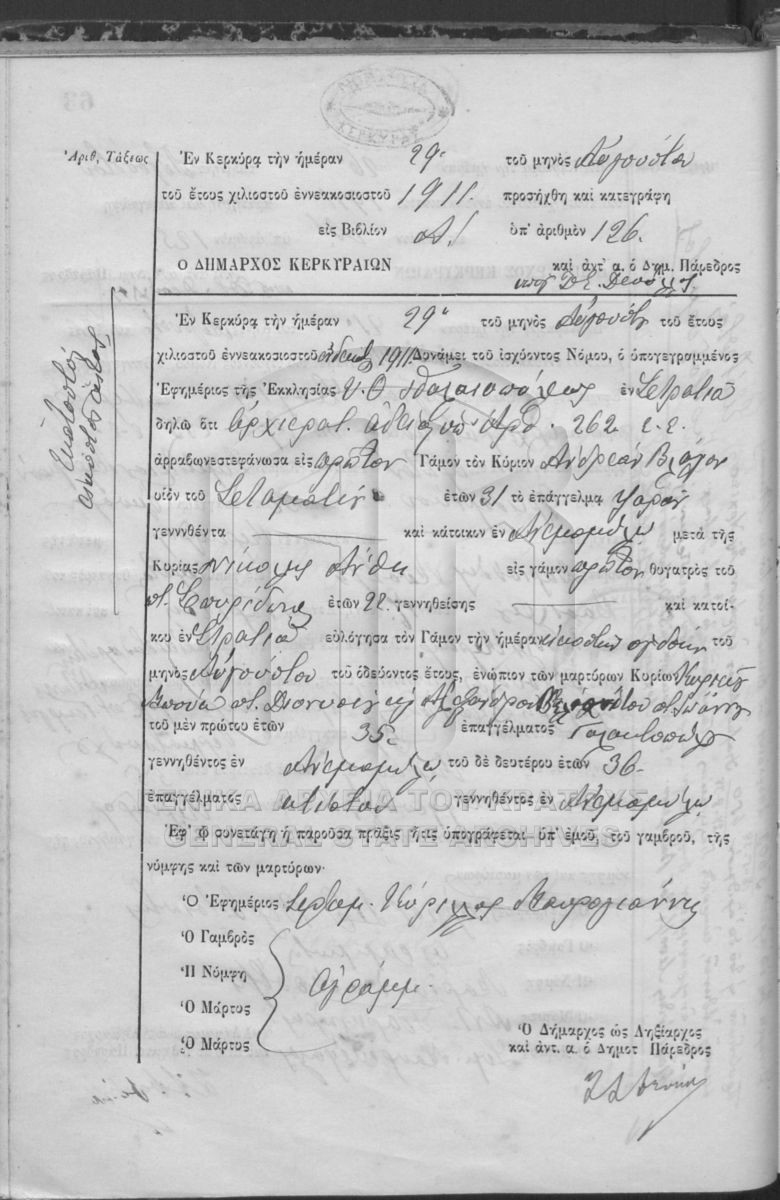 ΚΕΡΚΥΡΑΣ
Ἀριθ. Τάξεως
Ἐν Κερκύρᾳ τὴν ἡμέραν 29 τοῦ μηνὸς Αὐγούστου
τοῦ ἔτους χιλιοστοῦ ἐννεακοσιοστοῦ 1911. προσήχθη καὶ κατεγράφη
εἰς Βιβλίον Α! ὑπ' ἀριθμὸν 126.
Ὁ ΔΗΜΑΡΧΟΣ ΚΕΡΚΥΡΑΙΩΝ καὶ ἀντ' α. ὁ Δημ. Πάρεδρος
Ἑκατοστὸς
εἰκοστὸς ἕκτος
Ἐν Κερκύρᾳ τὴν ἡμέραν 29 τοῦ μηνὸς Αὐγούστου τοῦ ἔτους
χιλιοστοῦ ἐννεακοσιοστοῦ ἑνδεκάτου 1911 Δυνάμει τοῦ ἰσχύοντος Νόμου, ὁ ὑπογεγραμμένος
Ἐφημέριος τῆς Ἐκκλησίας Υ. Θ Παλαιοπόλεως ἐν Στρατιᾶ
δηλῶ ὅτι ἀρχιερατ. ἀδείᾳ ὑπ' ἀρθ. 262 ἐ. ἔ.
ἀρραβωνεστεφάνωσα εἰς πρῶτον Γάμον τὸν Κύριον Ἀνδρέαν Βλάχον
υἱὸν τοῦ Σταματίου ἐτῶν 31 τὸ ἐπάγγελμα ψαρᾶν
γεννηθέντα καὶ κάτοικον ἐν Ἀνεμομύλῳ μετὰ τῆς
Κυρίας εἰς γάμον πρῶτον θυγατρὸς τοῦ
π. Σπυρίδωνος ἐτῶν 22. γεννηθείσης καὶ κατοί-
κου ἐν Στρατιᾶ εὐλόγησα τὸν Γάμον τὴν ἡμέραν εἰκοστὴν ὀγδόην τοῦ
μηνὸς Αὐγούστου τοῦ ὁδεύοντος ἔτους, ἐνώπιον τῶν μαρτύρων Κυρίων
π. Διονυσίου καὶ Ἀλεξάνδρου π. Ἰωάννου
τοῦ μὲν πρώτου ἐτῶν 35 ἐπαγγέλματος Γαλακτοπώλου
γεννηθέντος ἐν Ἀνεμομύλῳ τοῦ δὲ δευτέρου ἐτῶν 36.
ἐπαγγέλματος κτίστου γεννηθέντος ἐν Ἀνεμομύλῳ
ΓΕΝΙΚΑ ΑΡΧΕΙΑ ΤΟΥ ΚΡΑΤΟΥΣ
GENERAL STATE ARCHIVES
Ἐφ' ᾧ συνετάγη ἡ παροῦσα πρᾶξις ἥτις ὑπογράφεται ὑπ' ἐμοῦ, τοῦ γαμβροῦ, τῆς
νύμφης καὶ τῶν μαρτύρων·
Ὁ Ἐφημέριος Σεραφ. Κύριλλος Μαυρογιάννης
Ὁ Γαμβρὸς
Ἡ Νύμφη ἀγράμμ.
Ὁ Μάρτυς
Ὁ Μάρτυς
Ὁ Δήμαρχος ὡς Ληξίαρχος
καὶ ἀντ. α. ὁ Δημοτ Πάρεδρος